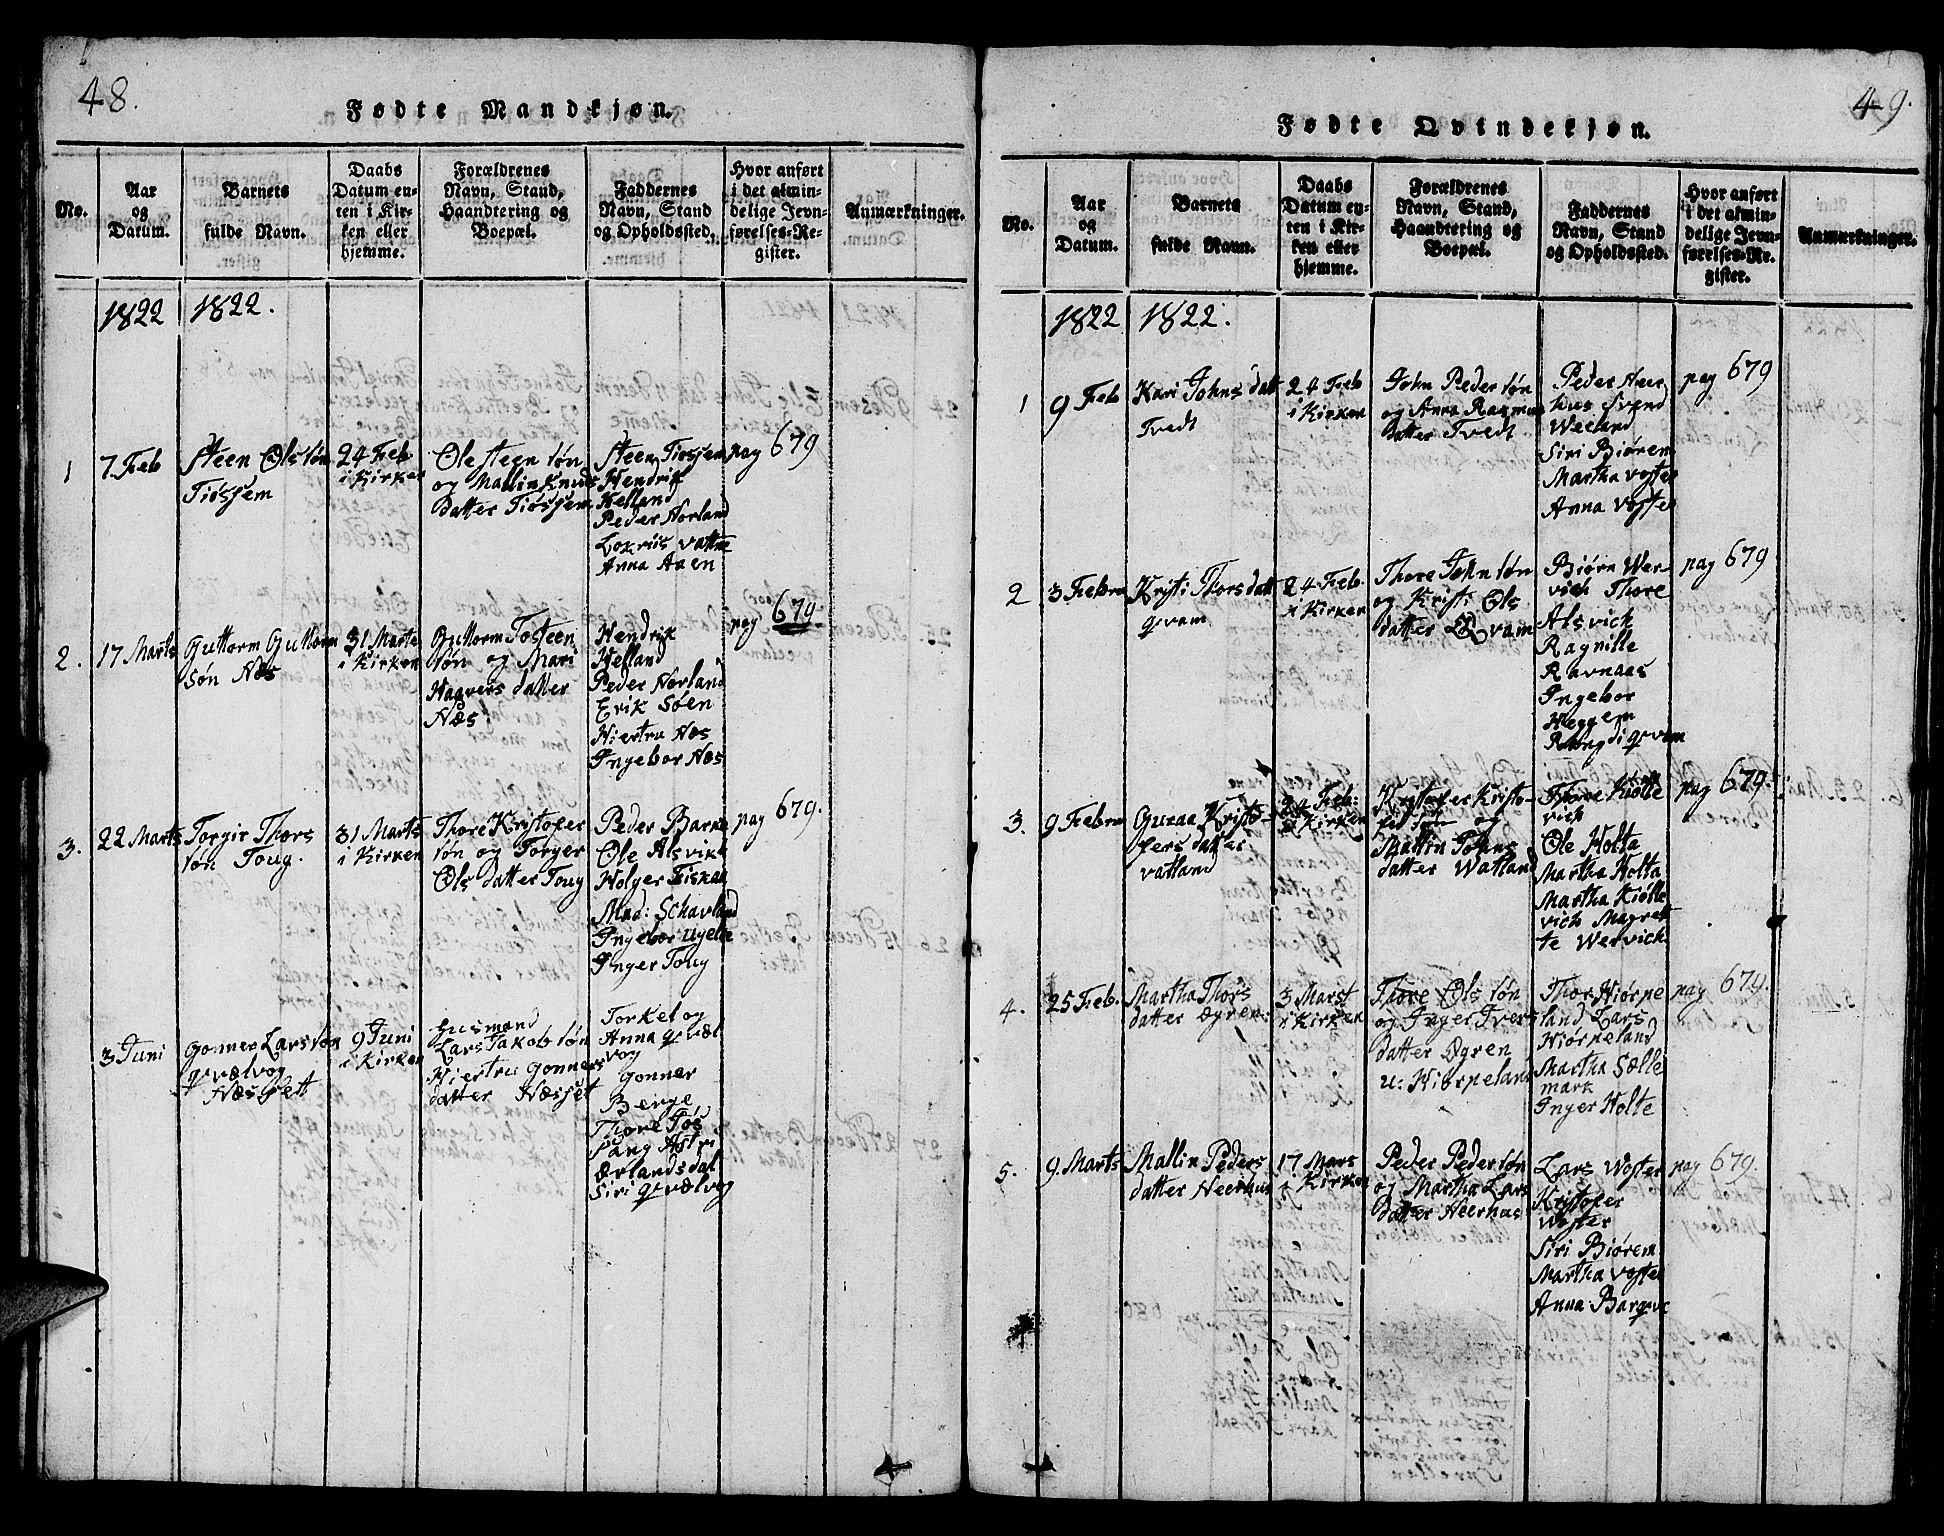 48.
Fødte Mandkjøn.
No.
Aar
og
Datum.
Barnets
fulde Navn.
Daabs
Datum en-
ten i Kir-
ken eller
hjemme.
Forældrenes
Navn, Stand,
Haandtering og
Boepæl.
Faddernes
Navn, Stand
og Opholdssted.
Hvor anført
i det almin-
delige Jevn-
førelses-Re-
gister.
Anmærkninger.
1822
1822.
1
7 Feb
Steen Olssøn
Tiøssem
24 Feb
i Kirken
Ole Steensøn
og Mallin Knuds
datter Tiøssem
Steen Tiossem
Hendrik
Helland
Peder Norland
Lokriis Vatne
Anna Aaen
pag 679
2.
17 Marts
Guttorm Guttorm
søn Næs
31 Marts
i Kirken
Guttorm Tosteen
søn og Mari
Hagvers datter
Næs
Hendrik
Helland
Peder Norland
Erik Søen
Hiertru Næs
Ingebor Næs
pag 679.
3.
22 Marts
Torgir Thors
søn Toug.
31 Marts
i Kirken
Thore Kristofer
søn og Torger
Ols datter Toug
Peder Barke
Ole Alsvik
Holger Fiskaa
Mad: Schavland
Ingebor
Inger Toug
pag 679.
3 Juni
Gonner Larssøn
qvælvog
Næsset
9 Juni
i Kirken
Husmand
Lars Jakobsøn
Hiertru Gonners
datter Næsset
Torkel og
Anna qvæl
vog
Gonner
Berge
Thore Tøs
Pang Astri
Ærlandsdal
Siri qvælvog
49.
Fødte Qvindekjøn.
No.
Aar
og
Datum.
Barnets
fulde Navn.
Daabs
Datum en-
ten i Kir-
ken eller
hjemme.
Forældrenes
Navn, Stand,
Haandtering og
Boepæl.
Faddernes
Navn, Stand
og Opholdssted.
Hvor anført
i det almin-
delige Jevn-
førelses-Re-
gister.
Anmærkninger.
1822
1822.
1
9 Feb
Kari Johns datt
Tvedt
24 Feb
i Kirken
John Pedersøn
og Anna Rasmus
datter Tvedt
Peder Neer
hus Svend
Weeland
Siri Biørem
Martha Voster
Anna Voster
pag 679
2
3 Febru
Kristi Thorsdatt
qvam
24 Feb.
i Kirken
Thore Johnsøn
og Kristi Ols
datter Qvam
Biørn Wer-
vich Thore
Alsvick
Ragnille
Ravnaas
Ingebor
Heggem
qvam
pag 679
3.
9 Febru
Guraa Kristo-
fers datter
vatland
24 Feb:
i Kirken
Kristofer Kristo-
fer søn og
Mallin Johns
datter Watland
Thore Kiølle
vich
Ole Holta
Martha Holta
Martha Kiølle
vich Magret
te Wervick
pag 679.
4.
25 Feb.
Martha Thors
datter Øgren
3 Marst
i Kirken
Thore Olssøn
og Inger Ivers
datter Øgren
u: Hiørpeland
Thor Hiørpe
land Lars
Hiørpeland
Martha Sælle
mark
Inger Holte
pag 679.
5.
9. Marts
Mallin Peders
datter Neerhus
17 Mars
i Kirken
Peder Pedersøn
og Martha Lars
datter Neerhus
Lars Woster
Kristofer
Woster
Siri Biørem
Martha Voster
Anna Bargeve
pag 679.